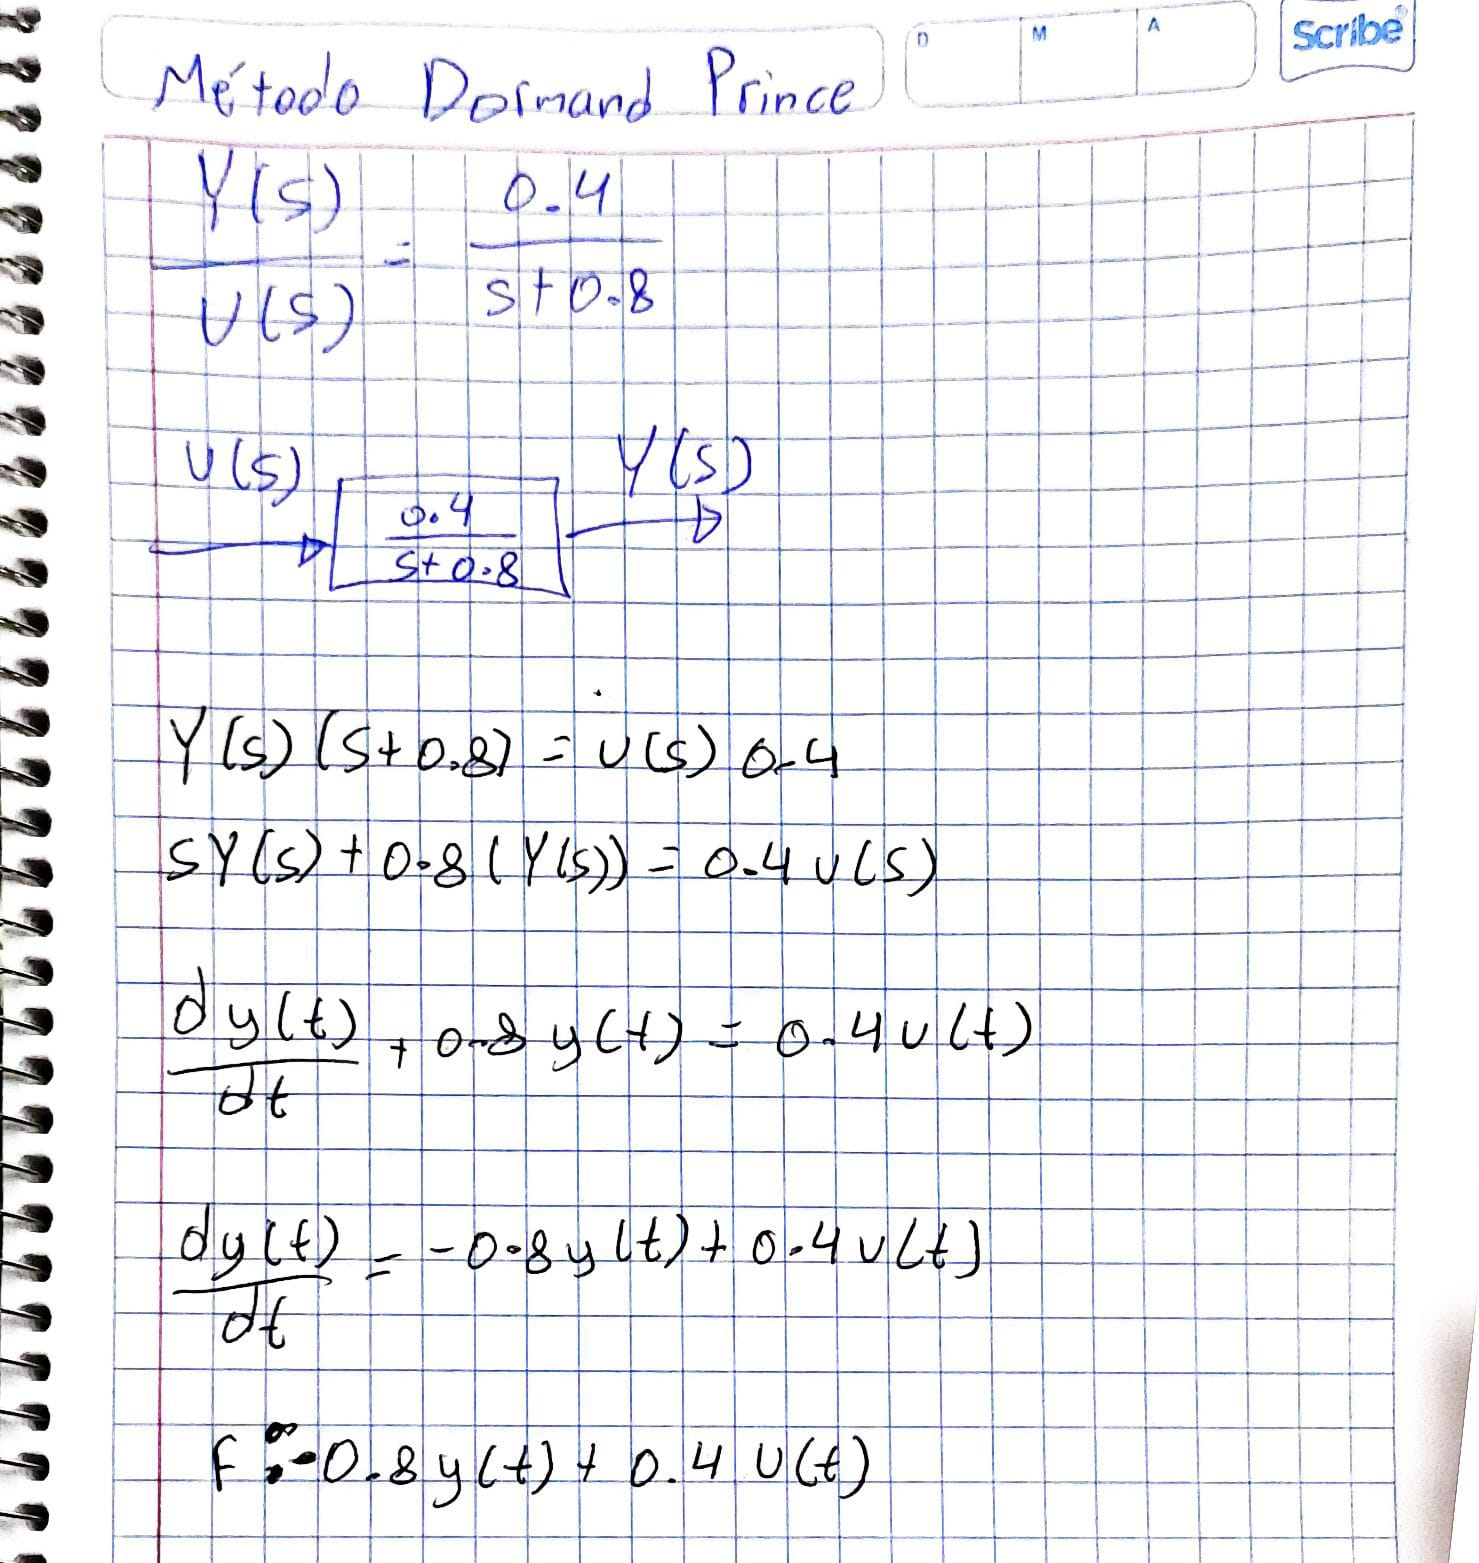 D M A Scribe
Método Dormand Prince
Y(s) = 0.4
U(s) s+0.8
U(s) 0.4 Y(s)
s+0.8
Y(s)(s+0.8) = U(s) 0.4
sY(s) + 0.8(Y(s)) = 0.4 U(s)
dy(t) + 0.8 y(t) = 0.4 u(t)
dt
dy(t) = -0.8 y(t) + 0.4 u(t)
dt
F: -0.8 y(t) + 0.4 U(t)